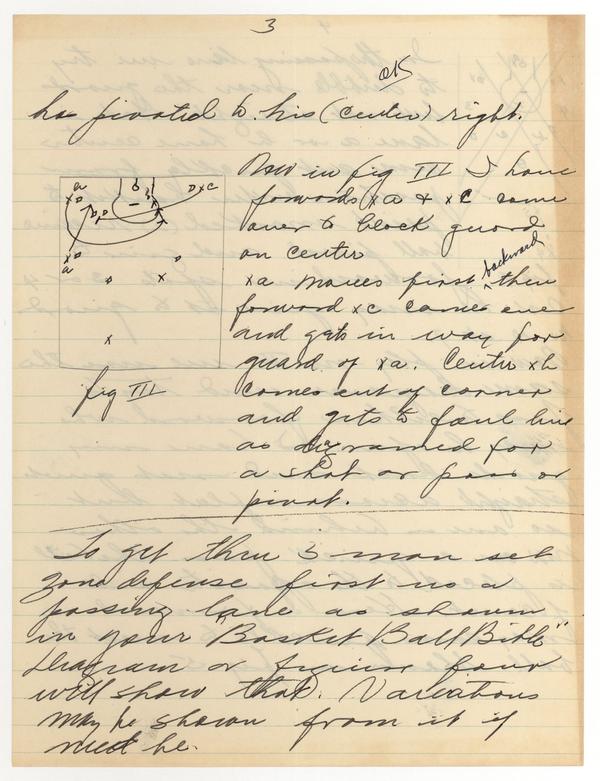 3
OK
has pivoted to his (center) right.
Now in fig III I have
forwards xa & xc come
over to block guard
on center
backward
xa moves first then
forward xc comes over
and gets in way for
guard of xa. Center xb
comes out of corner
and gets to foul line
as diagramed for
a shot or pass or
pivot.
a
xD
DxC
xD
a
D
D
x
x
fig III
To get thru 5 man set
zone defense first us a
passing lane as shown
in your "Basket Ball Bible"
Diagram or figure four
will show that. Variations
may be shown from it if
need be.